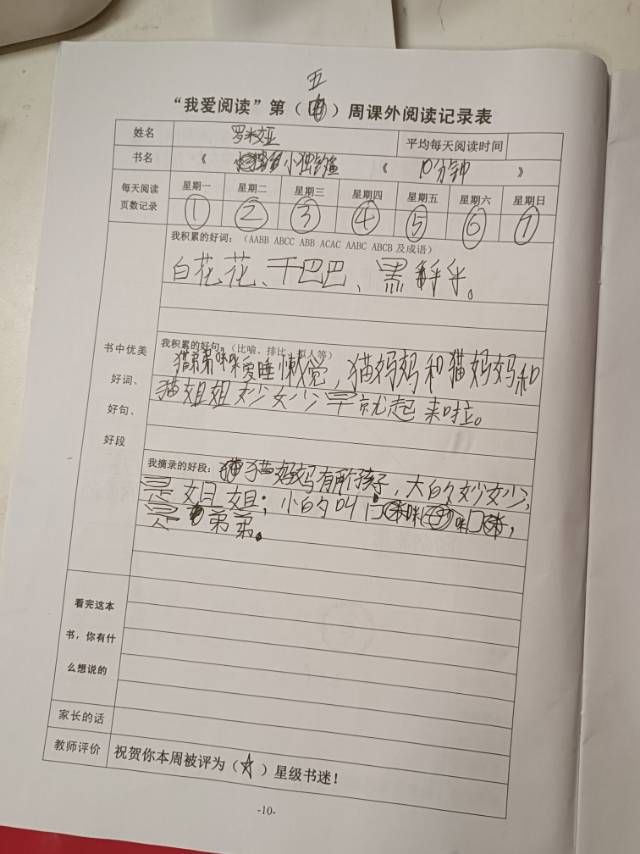 五
“我爱阅读”第（）周课外阅读记录表
姓名 平均每天阅读时间
书名 《 小 《 10分钟 》
每天阅读页数记录 星期一 星期二 星期三 星期四 星期五 星期六 星期日
① ② ③ ④ ⑤ ⑥ ⑦
我积累的好词：（AABB ABCC ABB ACAC AABC ABCB 及成语）
白花花、干巴巴、黑乎乎。
书中优美好词、好句、好段
我积累的好句：（比喻、排比、拟人等）
猫弟弟咪咪爱睡懒觉，猫妈妈和猫妈妈和
猫姐姐妙妙早就起来啦。
我摘录的好段：猫妈妈有两个孩子，大的叫妙妙，
是姐姐；小的叫咪咪，
是弟弟。
看完这本书，你有什么想说的
家长的话
教师评价 祝贺你本周被评为（☆）星级书迷！
-10-